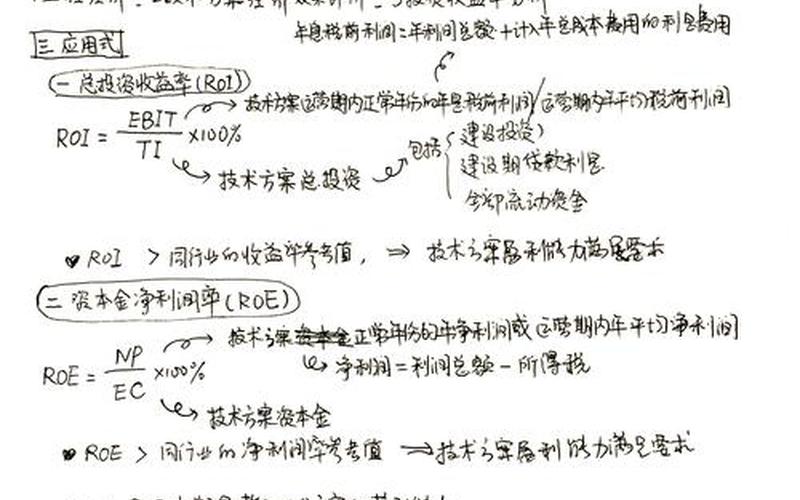 年息税前利润=年利润总额+计入年总成本费用的利息费用
三 应用式
一 总投资收益率(ROI)
ROI = EBIT / TI ×100%
技术方案运营期内正常年份的年息税前利润/运营期内年平均税前利润
技术方案总投资
包括
建设投资
建设期贷款利息
全部流动资金
ROI > 同行业的收益率参考值, ⇒ 技术方案盈利能力满足要求
二 资本金净利润率(ROE)
ROE = NP / EC ×100%
技术方案正常年份的年净利润或运营期内年平均净利润
净利润=利润总额-所得税
技术方案资本金
ROE > 同行业的净利润率参考值 ⇒ 技术方案盈利能力满足要求